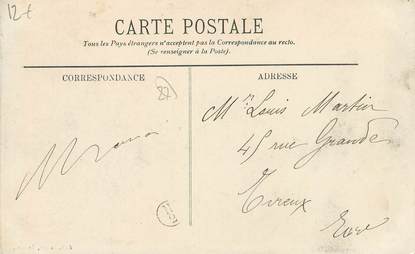 12€
CARTE POSTALE
Tous les Pays étrangers n'acceptent pas la Correspondance au recto.
(Se renseigner à la Poste).
CORRESPONDANCE
ADRESSE
Mr Louis Martin
45 rue Grande
Evreux
Eure